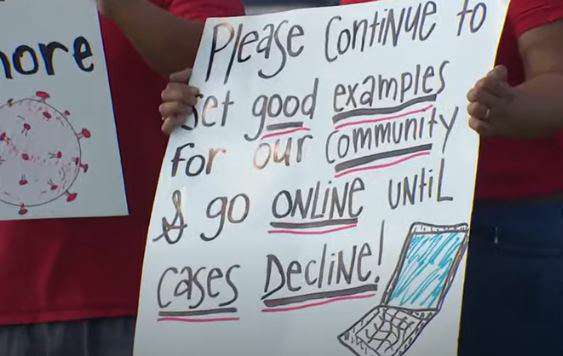 Please Continue to
Set good examples
for our Community
& go ONLINE UNTIL
CASES DECLINE!